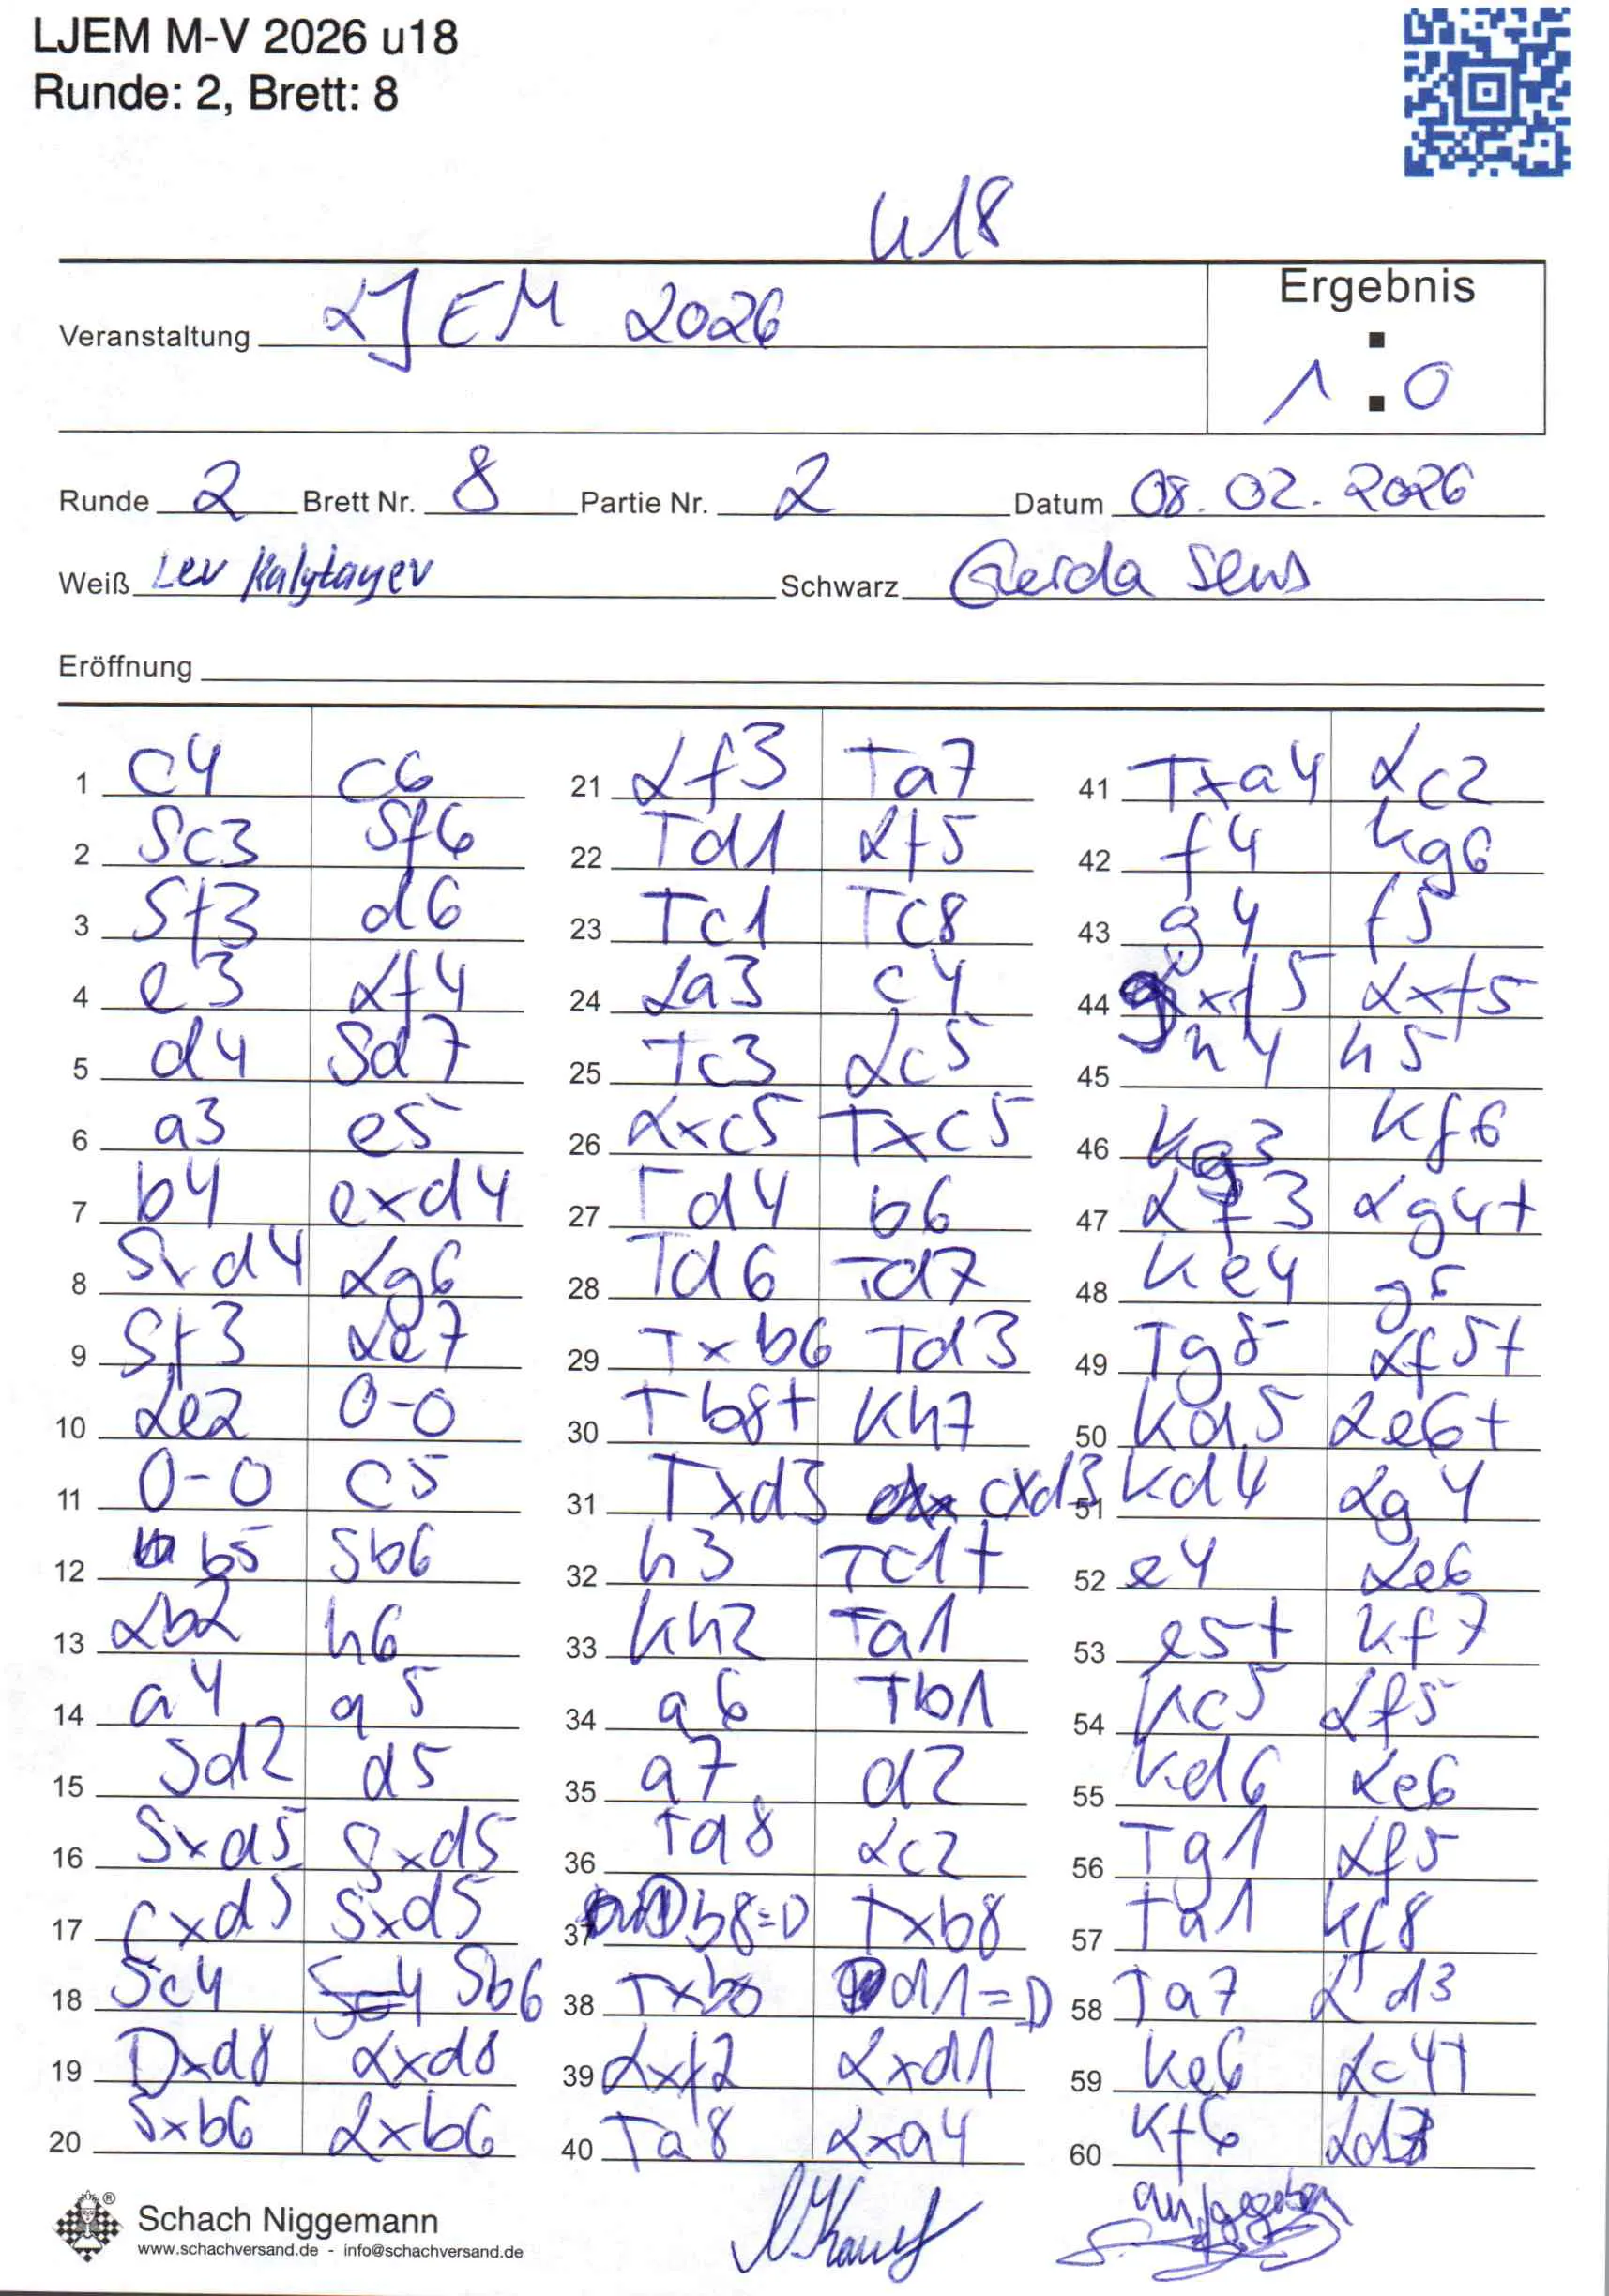 LJEM M-V 2026 u18
Runde: 2, Brett: 8
u18
Veranstaltung LJEM 2026
Ergebnis
1 : 0
Runde 2 Brett Nr. 8 Partie Nr. 2 Datum 08.02.2026
Weiß Lev Kalytayev Schwarz Gerda Sens
Eröffnung
1 c4 c6
2 Sc3 Sf6
3 Sf3 d6
4 e3 Lf4
5 d4 Sd7
6 a3 e5
7 b4 exd4
8 Sxd4 Lg6
9 Sf3 Le7
10 Le2 0-0
11 0-0 c5
12 b5 Sb6
13 Lb2 h6
14 a4 a5
15 Sd2 d5
16 Sxd5 Sxd5
17 cxd5 Sxd5
18 Sc4 Sb6
19 Dxd8 Lxd8
20 Sxb6 Lxb6
21 Lf3 Ta7
22 Td1 Lf5
23 Tc1 Tc8
24 La3 c4
25 Tc3 Lc5
26 Lxc5 Txc5
27 Td4 b6
28 Td6 Td7
29 Txb6 Td3
30 Tb8+ Kh7
31 Txd3 cxd3
32 h3 Tc1+
33 Kh2 Ta1
34 a6 Tb1
35 a7 d2
36 Ta8 Lc2
37 b8=D Txb8
38 Txb8 d1=D
39 Lxf2 Lxd1
40 Ta8 Lxa4
41 Txa4 Lc2
42 f4 Kg6
43 g4 f5
44 gxf5 Lxf5
45 h4 h5
46 Kg3 Kf6
47 Kf3 Lg4+
48 Ke4 g5
49 Tg8 Lf5+
50 Kd5 Le6+
51 Kd4 Lg4
52 e4 Le6
53 e5+ Kf7
54 Kc5 Lf5
55 Kd6 Le6
56 Tg1 Lf5
57 Ta1 Kf8
58 Ta7 Ld3
59 Ke6 Lc4+
60 Kf6 Ld3
aufgegeben
Schach Niggemann
www.schachversand.de - info@schachversand.de